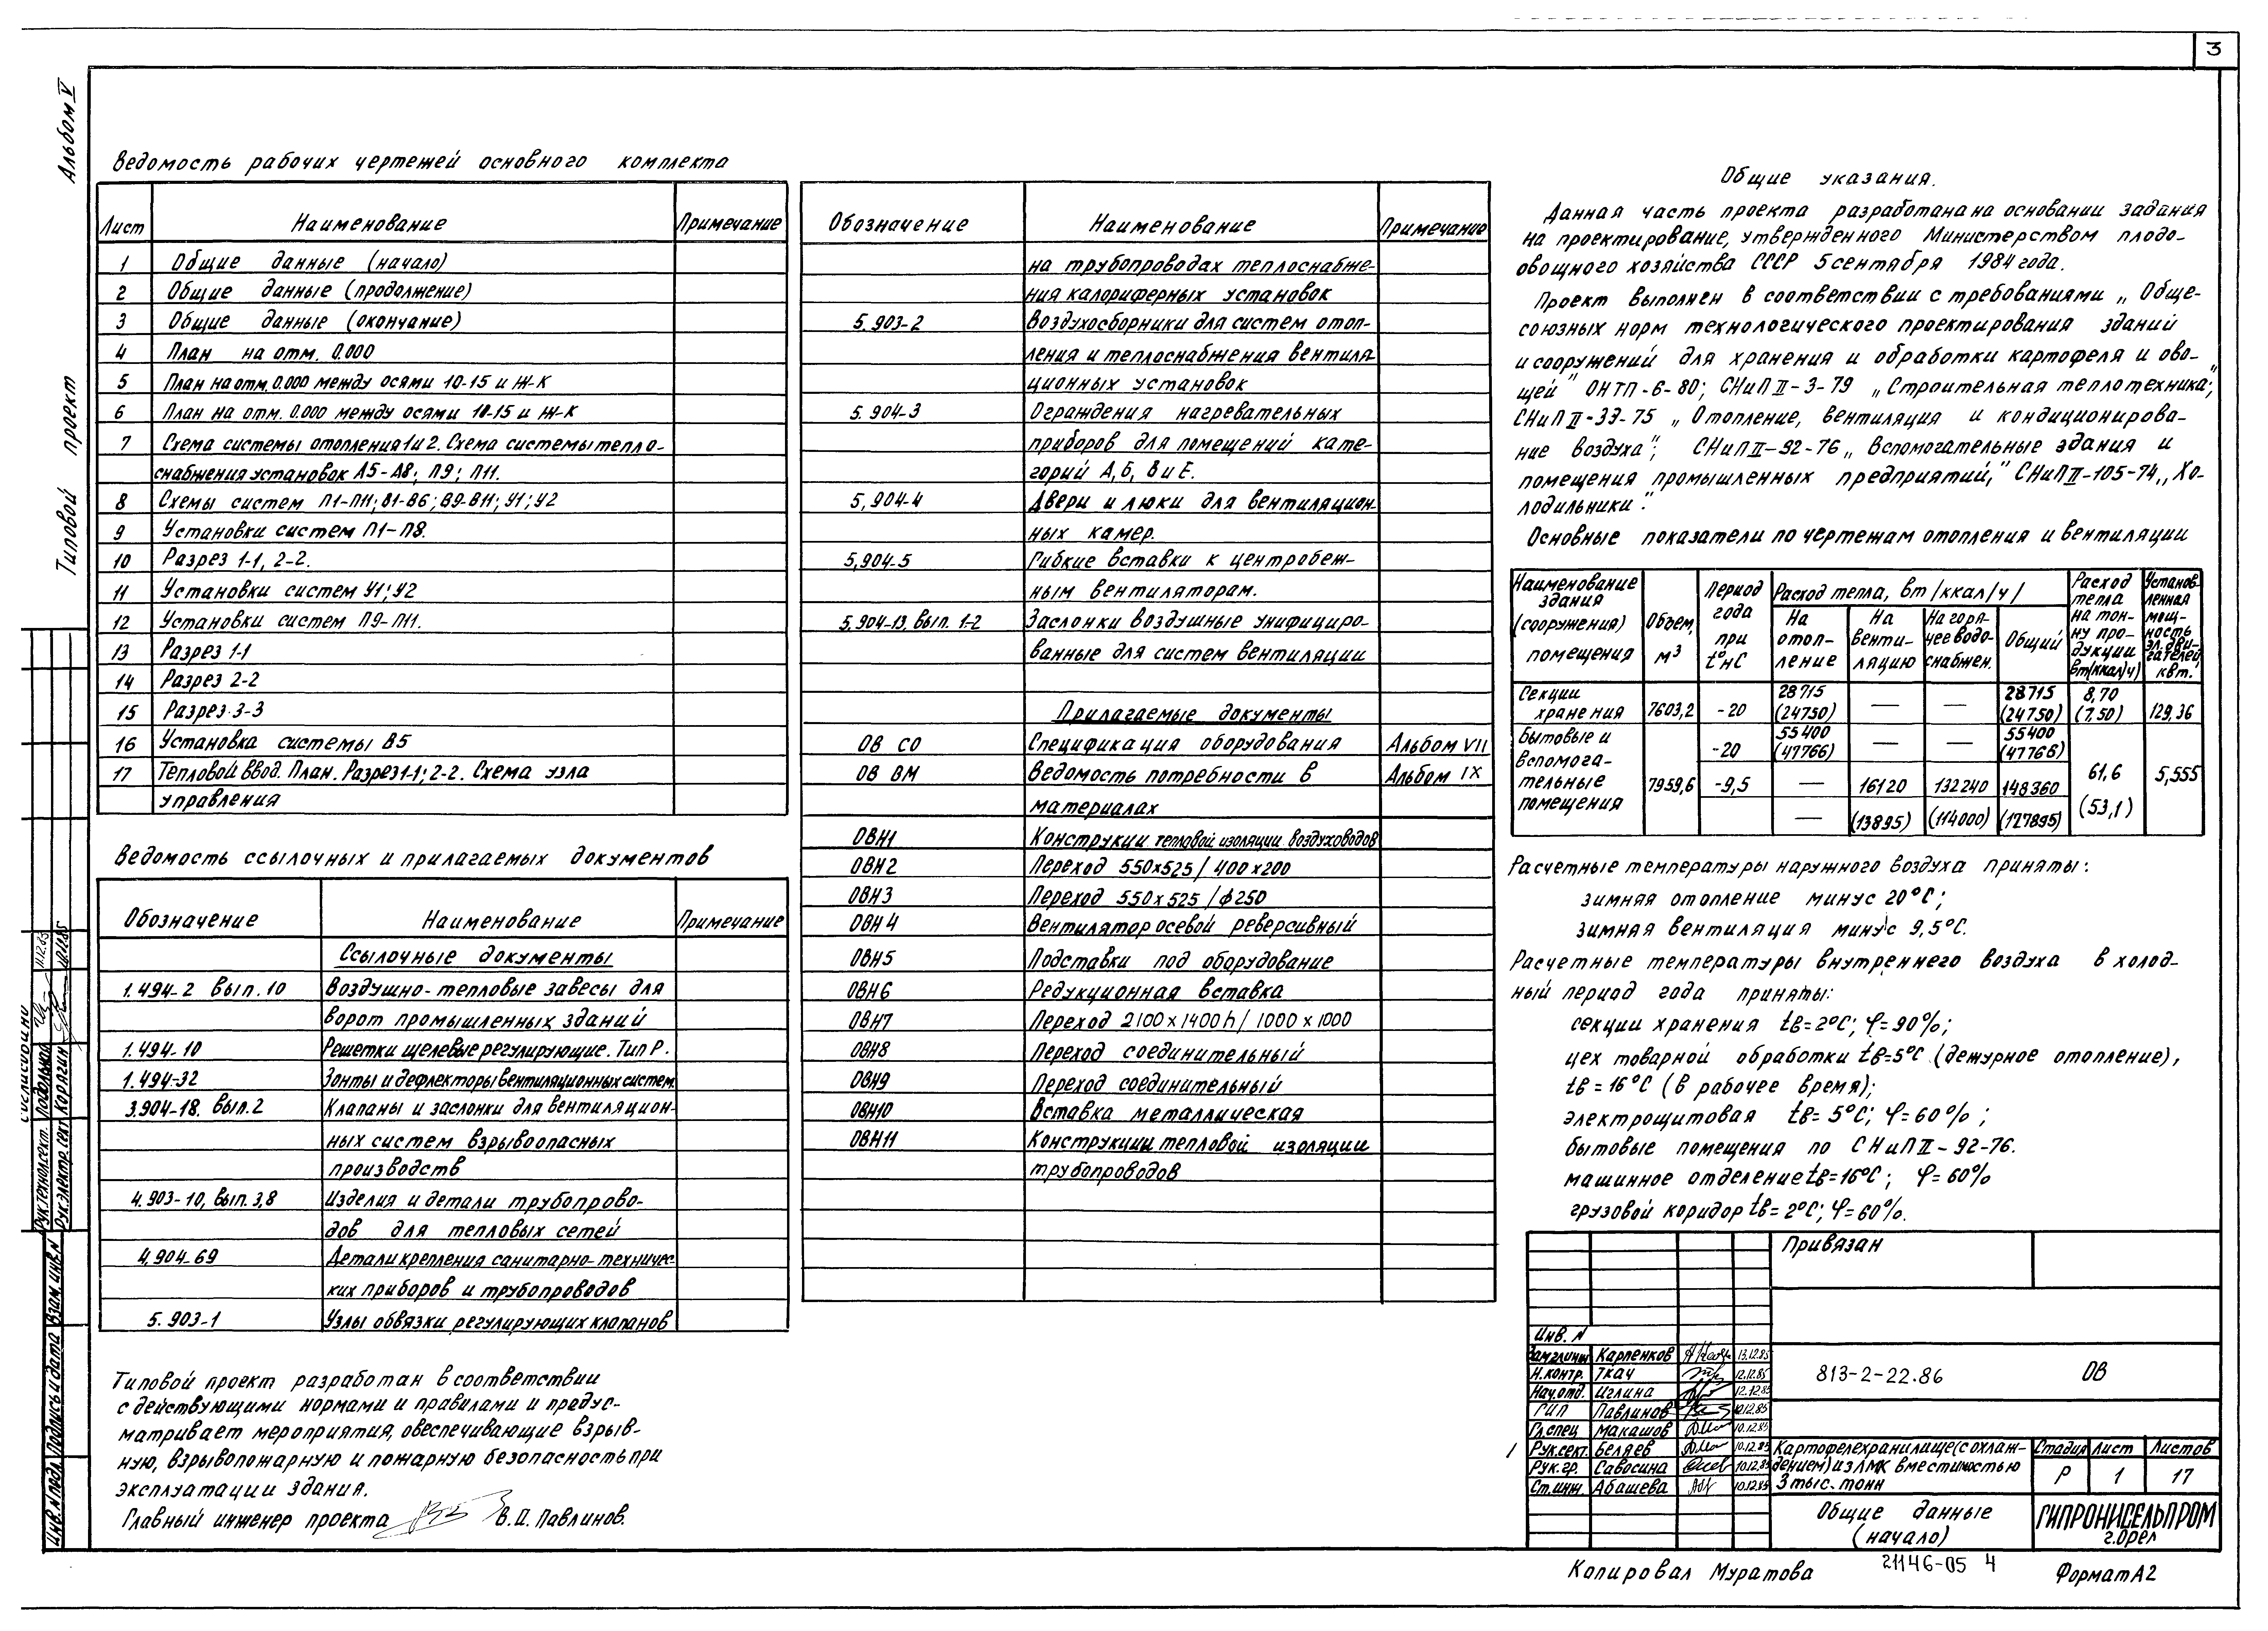 3
Альбом V
Типовой проект
Ведомость рабочих чертежей основного комплекта
Лист Наименование Примечание
1 Общие данные (начало)
2 Общие данные (продолжение)
3 Общие данные (окончание)
4 План на отм. 0.000
5 План на отм. 0.000 между осями 10-15 и Ж-К
6 План на отм. 0.000 между осями 10-15 и Ж-К
7 Схема системы отопления 1и2. Схема системы тепло-
снабжения установок А5-А8; П9; П11.
8 Схемы систем П1-П11; В1-В6; В9-В11; У1; У2
9 Установки систем П1-П8.
10 Разрез 1-1, 2-2.
11 Установки систем У1; У2
12 Установки систем П9-П11.
13 Разрез 1-1
14 Разрез 2-2
15 Разрез 3-3
16 Установка системы В5
17 Тепловой ввод. План. Разрез 1-1; 2-2. Схема узла
управления
Ведомость ссылочных и прилагаемых документов
Обозначение Наименование Примечание
Ссылочные документы
1.494-2 вып. 10 Воздушно-тепловые завесы для
ворот промышленных зданий
1.494-10 Решетки щелевые регулирующие. Тип Р.
1.494-32 Зонты и дефлекторы вентиляционных систем.
3.904-18. вып.2 Клапаны и заслонки для вентиляцион-
ных систем взрывоопасных
производств
4.903-10, вып. 3,8 Изделия и детали трубопрово-
дов для тепловых сетей
4.904-69 Детали крепления санитарно-техничес-
ких приборов и трубопроводов
5.903-1 Узлы обвязки регулирующих клапанов
Типовой проект разработан в соответствии
с действующими нормами и правилами и предус-
матривает мероприятия, обеспечивающие взрыв-
ную, взрывопожарную и пожарную безопасность при
эксплуатации здания.
Главный инженер проекта В.П. Павлинов.
Обозначение Наименование Примечание
на трубопроводах теплоснабже-
ния калориферных установок
5.903-2 Воздухосборники для систем отоп-
ления и теплоснабжения вентиля-
ционных установок
5.904-3 Ограждения нагревательных
приборов для помещений кате-
горий А, Б, В и Е.
5.904-4 Двери и люки для вентиляцион-
ных камер.
5.904-5 Гибкие вставки к центробеж-
ным вентиляторам.
5.904-13, вып. 1-2 Заслонки воздушные унифициро-
ванные для систем вентиляции
Прилагаемые документы
ОВ СО Спецификация оборудования Альбом VII
ОВ ВМ Ведомость потребности в Альбом IX
материалах
ОВН1 Конструкции тепловой изоляции воздуховодов
ОВН2 Переход 550х525 / 400х200
ОВН3 Переход 550х525 / ф250
ОВН4 Вентилятор осевой реверсивный
ОВН5 Подставки под оборудование
ОВН6 Редукционная вставка
ОВН7 Переход 2100х1400h / 1000х1000
ОВН8 Переход соединительный
ОВН9 Переход соединительный
ОВН10 Вставка металлическая
ОВН11 Конструкции тепловой изоляции
трубопроводов
Общие указания.
Данная часть проекта разработана на основании задания
на проектирование, утвержденного Министерством плодо-
овощного хозяйства СССР 5 сентября 1984 года.
Проект выполнен в соответствии с требованиями „Обще-
союзных норм технологического проектирования зданий
и сооружений для хранения и обработки картофеля и ово-
щей" ОНТП-6-80; СНиП II-3-79 „Строительная теплотехника";
СНиП II-33-75 „Отопление, вентиляция и кондиционирова-
ние воздуха"; СНиП II-92-76 „Вспомогательные здания и
помещения промышленных предприятий," СНиП II-105-74 „Хо-
лодильники".
Основные показатели по чертежам отопления и вентиляции
Наименование здания (сооружения) помещения Объем, м³ Период года при t°нС Расход тепла, вт /ккал/ч/ Расход тепла на тон-ну про-дукции вт(ккал/ч) Установ-ленная мощ-ность эл.дви-гателей, квт.
На отоп-ление На венти-ляцию На горя-чее водо-снабжен. Общий
Секции хранения 7603,2 -20 28715 (24750) — — 28715 (24750) 8,70 (7,50) 129,36
Бытовые и вспомога-тельные помещения 7959,6 -20 55400 (47766) — — 55400 (47766) 61,6 (53,1) 5,555
-9,5 — 16120 132240 148360
— (13895) (114000) (127895)
Расчетные температуры наружного воздуха приняты:
зимняя отопление минус 20°С;
зимняя вентиляция минус 9,5°С.
Расчетные температуры внутреннего воздуха в холод-
ный период года приняты:
секции хранения tв=2°С; φ=90%;
цех товарной обработки tв=5°С (дежурное отопление),
tв=16°С (в рабочее время);
электрощитовая tв=5°С; φ=60%;
бытовые помещения по СНиП II-92-76.
машинное отделение tв=16°С; φ=60%
грузовой коридор tв=2°С; φ=60%.
Привязан
Инв. N
Зам.гл.инж Карпенков 13.12.85
Н.контр. Ткач 12.12.85
Нач.отд. Иглина 12.12.85
ГИП Павлинов 10.12.85
Гл.спец Макашов 10.12.85
Рук.сект. Беляев 10.12.85
Рук.гр. Савосина 10.12.85
Ст.инж. Абашева 10.12.85
813-2-22.86 ОВ
Картофелехранилище (с охлаж-
дением) из ЛМК вместимостью
3 тыс. тонн
Стадия Лист Листов
Р 1 17
Общие данные
(начало)
ГИПРОНИСЕЛЬПРОМ
г. Орел
Копировал Муратова 21146-05 4 Формат А2
Согласовано
Рук.технол.сект. Подольная 11.12.85
Рук.электр.сект Корягин
Инв. N подл. Подпись и дата Взам. инв. N